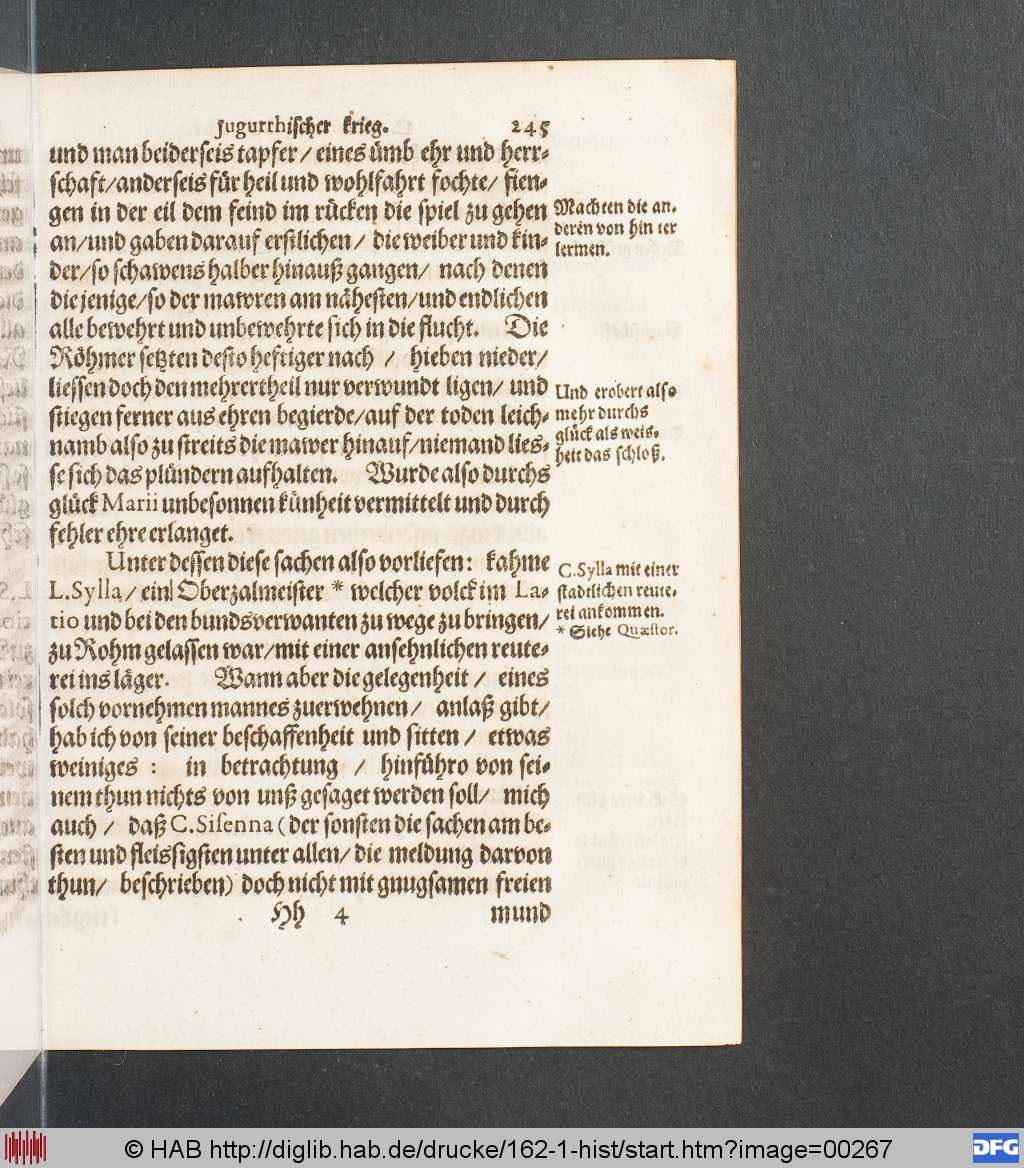 Jugurthischer krieg. 245
und man beiderseis tapfer / eines ümb ehr und herr-
schaft/anderseis für heil und wohlfahrt fochte/ fien-
gen in der eil dem feind im rücken die spiel zu gehen
an/und gaben darauf erstlichen / die weiber und kin-
der/so schawens halber hinauß gangen/ nach denen
die jenige/so der mawren am nähesten/und endlichen
alle bewehrt und unbewehrte sich in die flucht. Die
Röhmer setzten desto heftiger nach / hieben nieder/
liessen doch den mehrertheil nur verwundt ligen/ und
stiegen ferner aus ehren begierde/auf der toden leich-
namb also zu streits die mawer hinauf/niemand lies-
se sich das plündern aufhalten. Wurde also durchs
glück Marii unbesonnen künheit vermittelt und durch
fehler ehre erlanget.
Unter dessen diese sachen also vorliefen: kahme
L.Sylla/ ein Oberzalmeister * welcher volck im La-
tio und bei den bundsverwanten zu wege zu bringen/
zu Rohm gelassen war/mit einer ansehnlichen reute-
rei ins läger. Wann aber die gelegenheit / eines
solch vornehmen mannes zuerwehnen/ anlaß gibt/
hab ich von seiner beschaffenheit und sitten / etwas
weiniges : in betrachtung / hinführo von sei-
nem thun nichts von unß gesaget werden soll/ mich
auch / daß C.Sisenna (der sonsten die sachen am be-
sten und fleissigsten unter allen/ die meldung darvon
thun/ beschrieben) doch nicht mit gnugsamen freien
Hh 4 mund
Machten die an.
deren von hin ter
lermen.
Und erobert also
mehr durchs
glück als weis-
heit das schloß.
C.Sylla mit einer
stadtlichen reute-
rei ankommen.
* Siehe Quæstor.
© HAB http://diglib.hab.de/drucke/162-1-hist/start.htm?image=00267
DFG